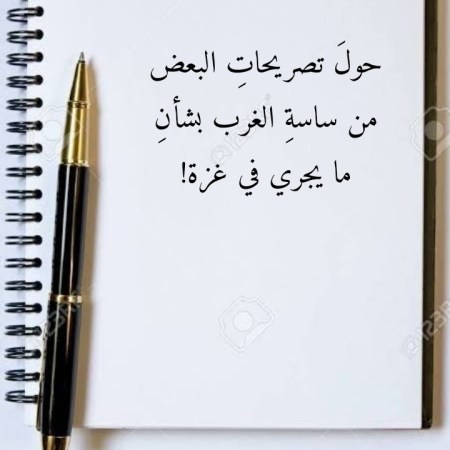 حولَ تصريحاتِ البعض
من ساسةِ الغرب بشأنِ
ما يجري في غزة!